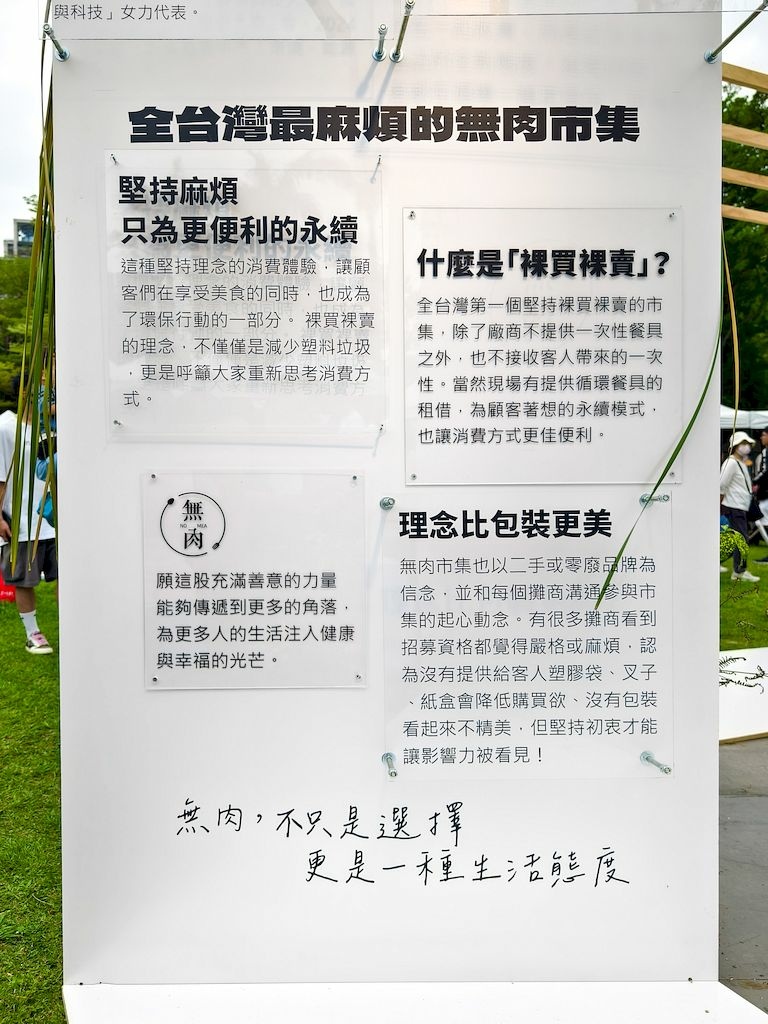 與科技」女力代表。
全台灣最麻煩的無肉市集
堅持麻煩
只為更便利的永續
這種堅持理念的消費體驗，讓顧
客們在享受美食的同時，也成為
了環保行動的一部分。裸買裸賣
的理念，不僅僅是減少塑料垃圾
，更是呼籲大家重新思考消費方
式。
什麼是「裸買裸賣」？
全台灣第一個堅持裸買裸賣的市
集，除了廠商不提供一次性餐具
之外，也不接收客人帶來的一次
性。當然現場有提供循環餐具的
租借，為顧客著想的永續模式，
也讓消費方式更佳便利。
無
NO MEA
肉
願這股充滿善意的力量
能夠傳遞到更多的角落，
為更多人的生活注入健康
與幸福的光芒。
理念比包裝更美
無肉市集也以二手或零廢品牌為
信念，並和每個攤商溝通參與市
集的起心動念。有很多攤商看到
招募資格都覺得嚴格或麻煩，認
為沒有提供給客人塑膠袋、叉子
、紙盒會降低購買欲、沒有包裝
看起來不精美，但堅持初衷才能
讓影響力被看見！
無肉，不只是選擇
更是一種生活態度